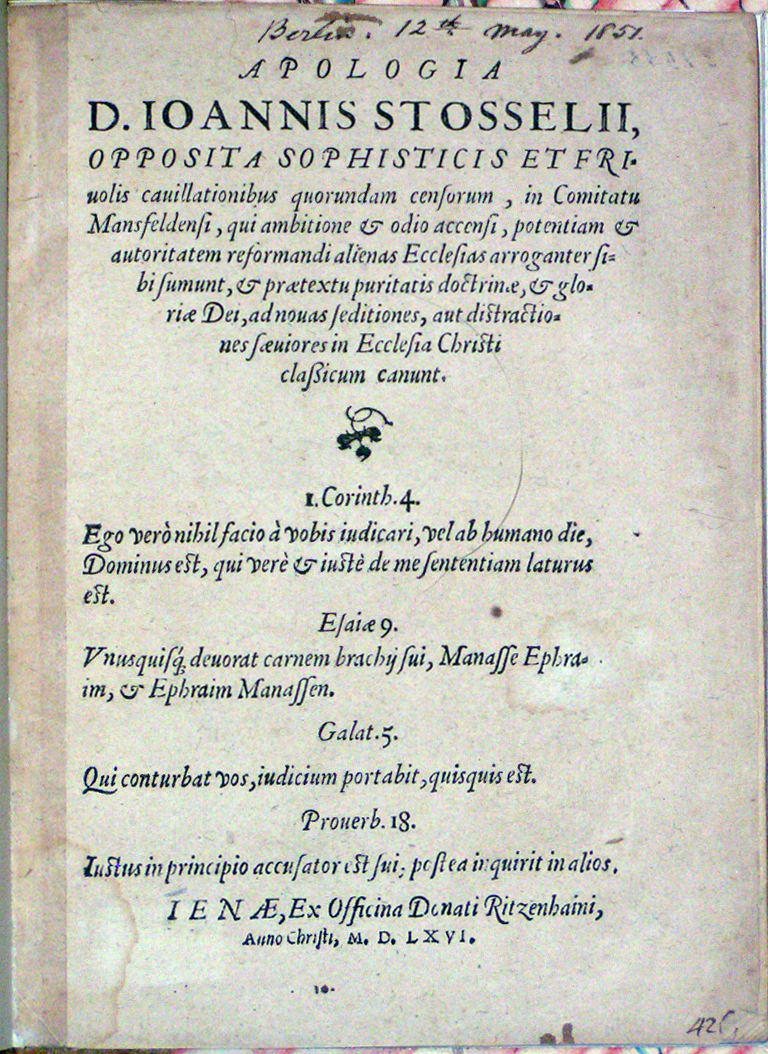 Berlin. 12th May. 1851.
APOLOGIA
D. IOANNIS STOSSELII,
OPPOSITA SOPHISTICIS ET FRI-
uolis cauillationibus quorundam cenſorum, in Comitatu
Mansfeldenſi, qui ambitione & odio accenſi, potentiam &
autoritatem reformandi alienas Eccleſias arroganter ſi=
bi ſumunt, & prætextu puritatis doctrinæ, & glo-
riæ Dei, ad nouas ſeditiones, aut distractio=
nes ſæuiores in Eccleſia Chriſti
claſſicum canunt.
1. Corinth. 4.
Ego verò nihil facio à vobis iudicari, vel ab humano die,
Dominus est, qui verè & iustè de me ſententiam laturus
est.
Eſaiæ 9.
Vnusquiſq́; deuorat carnem brachij ſui, Manaſſe Ephra-
im, & Ephraim Manaſſen.
Galat. 5.
Qui conturbat vos, iudicium portabit, quisquis est.
Prouerb. 18.
Iustus in principio accuſator est ſui; postea inquirit in alios.
IENÆ, Ex Officina Donati Ritzenhaini,
Anno Chriſti, M. D. LXVI.
10.